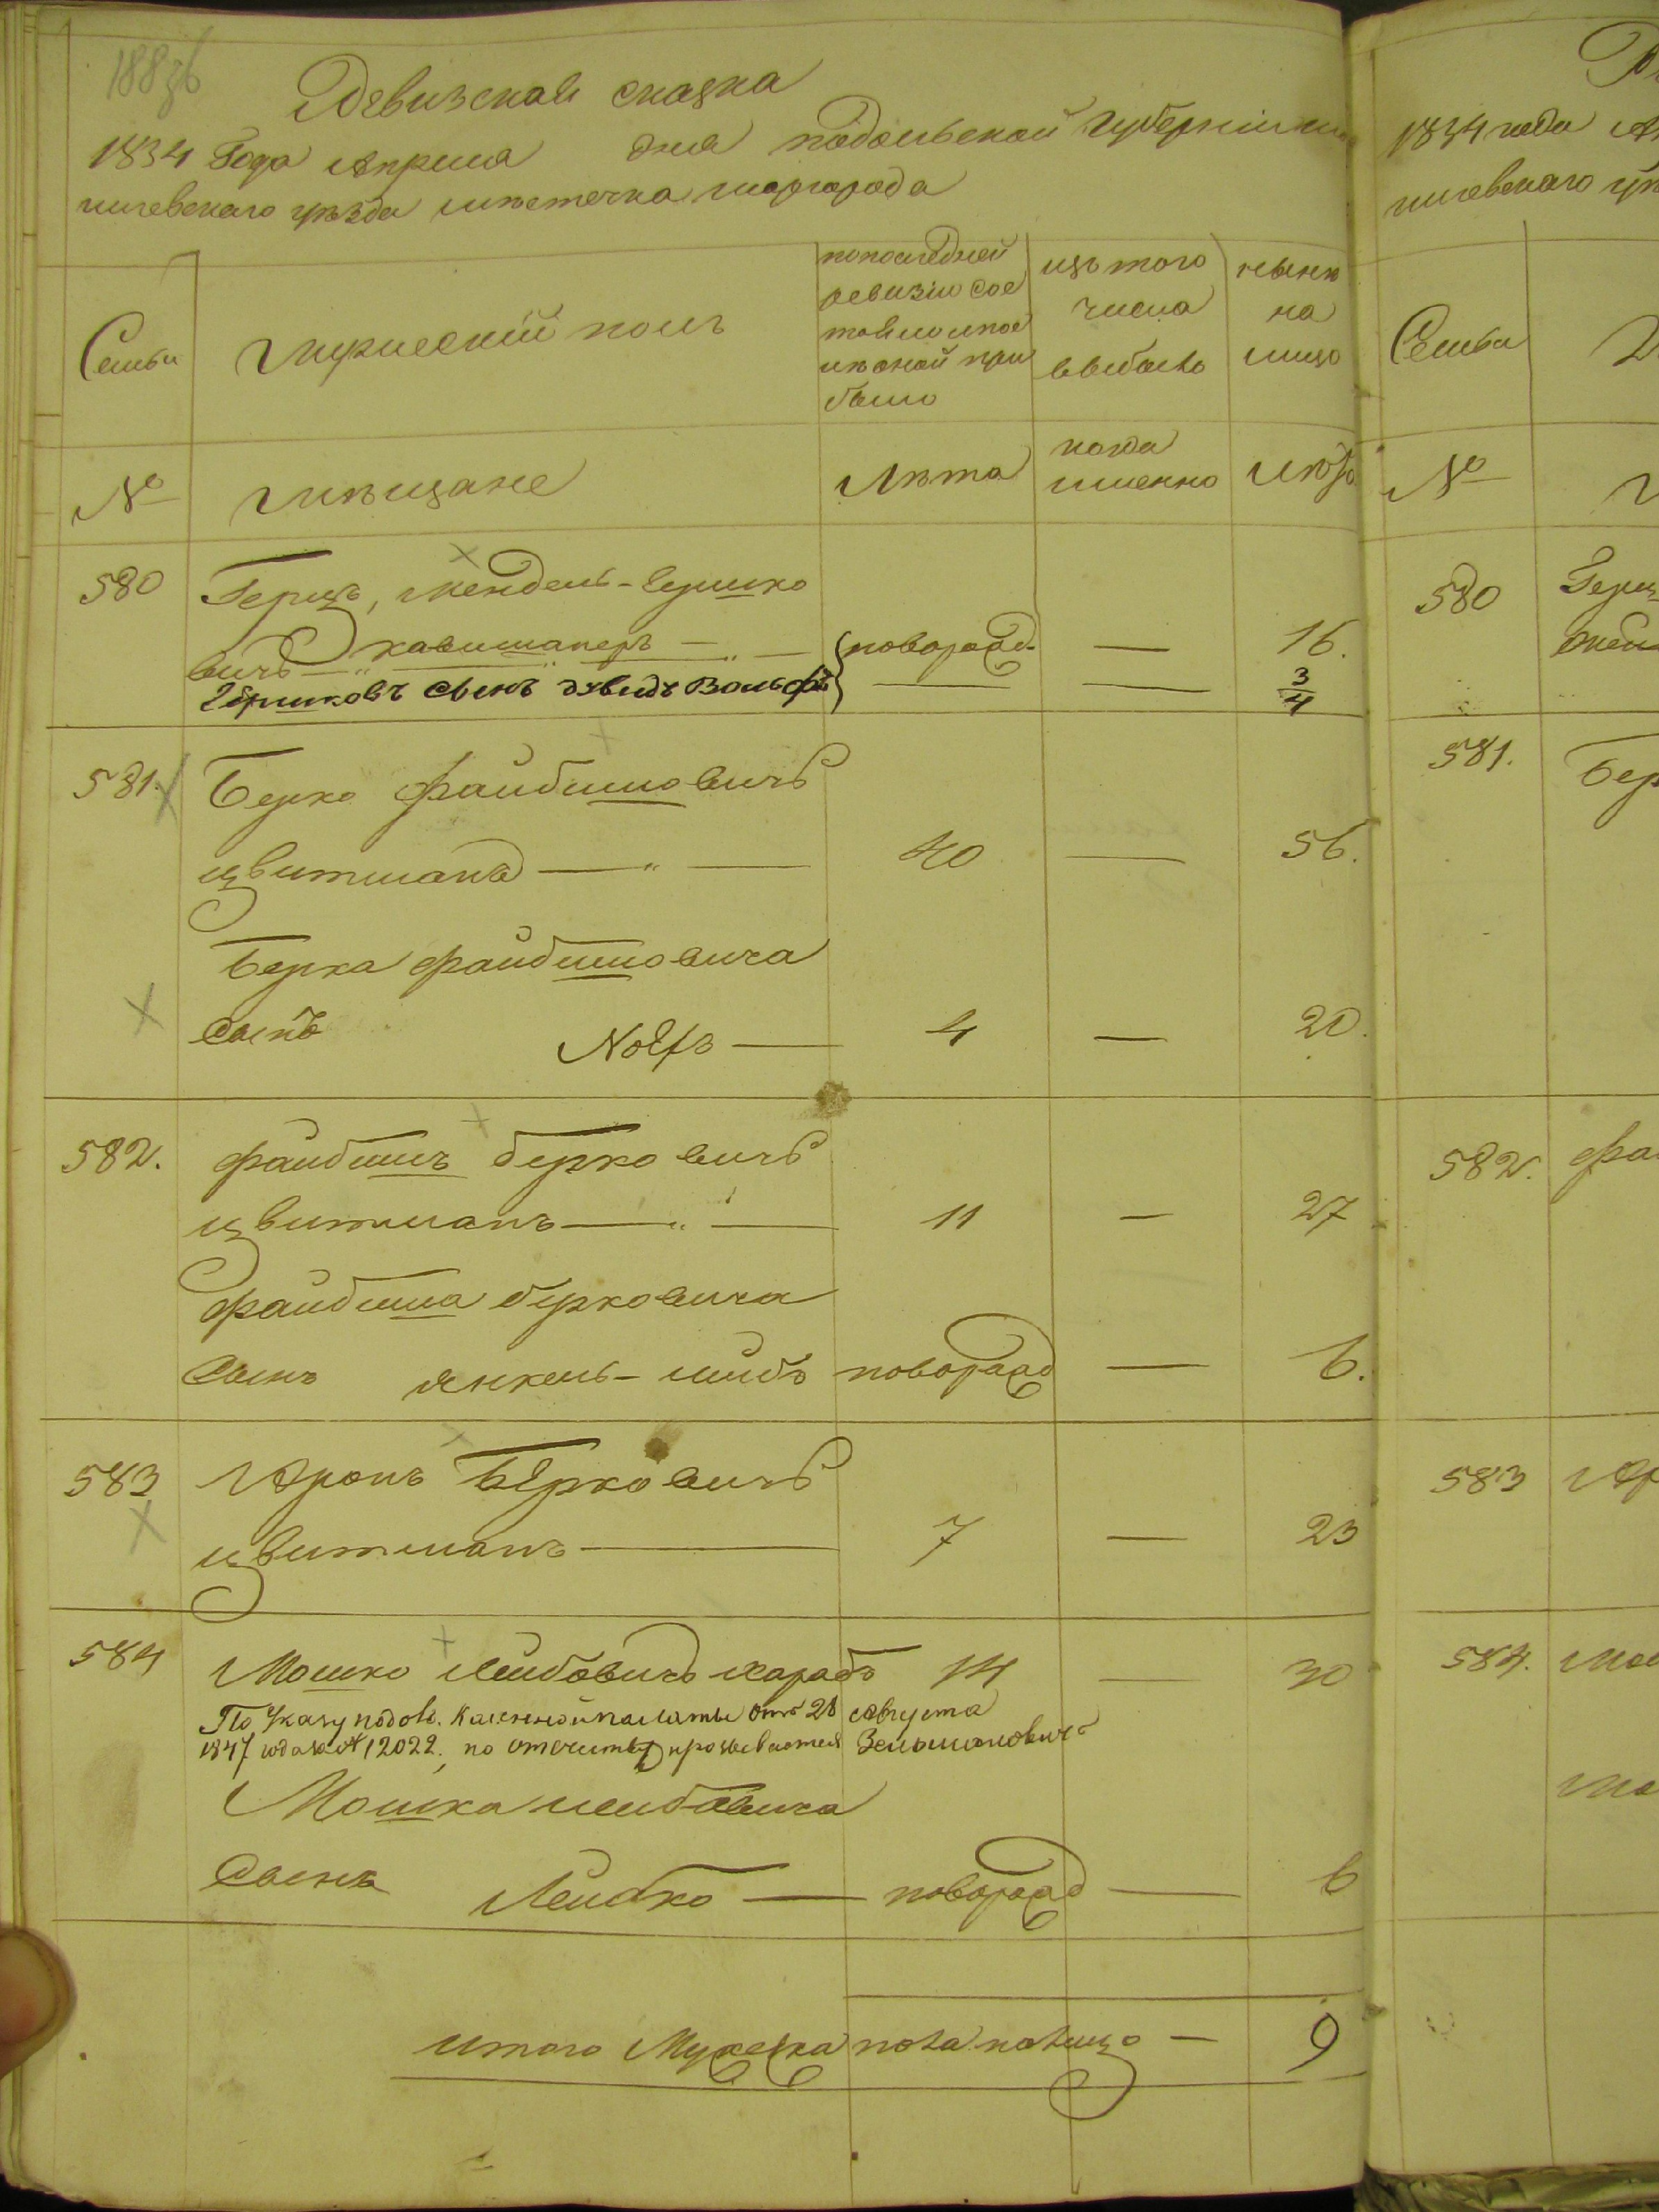 Ревизская сказка
1834 Года Апреля дня подольской губернiи мо
гилевского уѣзда мѣстечка шаргорода
Семьи
Мужеский полъ
по последней
ревизiи сос
тояло и пос
лѣ оной при
было
изъ того
числа
выбыло
нынѣ
на
лицо
№
мѣщане
Лѣта
когда
именно
Лѣта
580 Герцъ, Мендель-Гершко
вичъ новорожд. — 16.
Гершковъ сынъ Давидъ Вольфъ — — 3/4
581. Берко файбишовичъ
цвитманъ — „ — 40 — 56.
Берка файбишовича
сынъ — 4 — 20.
582. файбишъ берковичъ
цвитманъ — „ — 11 — 27
файбиша берковича
сынъ янкель-лейбъ новорожд — 6.
583 Аронъ Берковичъ
цвитманъ — 7 — 23
584 Мошко Лейбовичъ 14 — 30
По Указу подол. Казенной палаты отъ 28 августа
1847 года за № 12022, по прозывается Зельмановичъ
Мошка лейбовича
Сынъ Лейбко — новорожд — 6
итого Мужеска пола налицо — 9
1834 года
гилевского
Семьи
№
580
581.
582.
583
584.